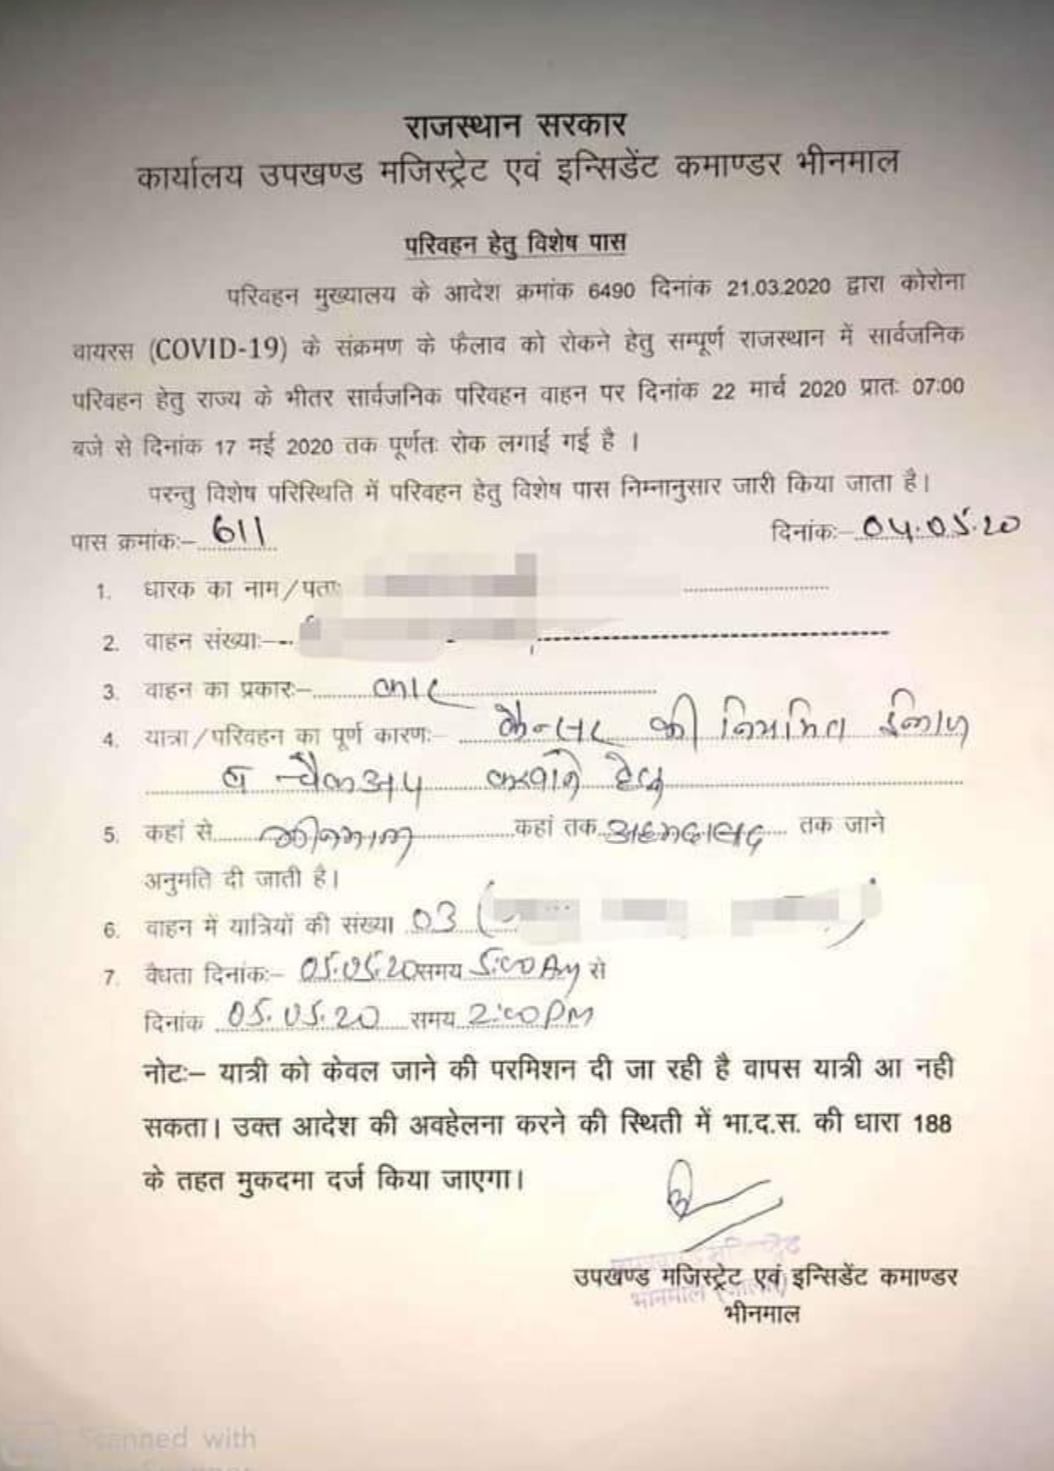 राजस्थान सरकार
कार्यालय उपखण्ड मजिस्ट्रेट एवं इन्सिडेंट कमाण्डर भीनमाल
परिवहन हेतु विशेष पास
परिवहन मुख्यालय के आदेश क्रमांक 6490 दिनांक 21.03.2020 द्वारा कोरोना
वायरस (COVID-19) के संक्रमण के फैलाव को रोकने हेतु सम्पूर्ण राजस्थान में सार्वजनिक
परिवहन हेतु राज्य के भीतर सार्वजनिक परिवहन वाहन पर दिनांक 22 मार्च 2020 प्रातः 07:00
बजे से दिनांक 17 मई 2020 तक पूर्णतः रोक लगाई गई है ।
परन्तु विशेष परिस्थिति में परिवहन हेतु विशेष पास निम्नानुसार जारी किया जाता है।
पास क्रमांक:– 611 दिनांक:– 04.05.20
1. धारक का नाम/पता:
2. वाहन संख्या:–
3. वाहन का प्रकार:– कार
4. यात्रा/परिवहन का पूर्ण कारण:– कैन्सर की नियमित ईलाज
व चैकअप करवाने हेतु
5. कहां से भीनमाल कहां तक अहमदाबाद तक जाने
अनुमति दी जाती है।
6. वाहन में यात्रियों की संख्या 03 (      )
7. वैधता दिनांक:– 05.05.20 समय 5:00 AM से
दिनांक 05.05.20 समय 2:00 PM
नोटः– यात्री को केवल जाने की परमिशन दी जा रही है वापस यात्री आ नही
सकता। उक्त आदेश की अवहेलना करने की स्थिती में भा.द.स. की धारा 188
के तहत मुकदमा दर्ज किया जाएगा।
उपखण्ड मजिस्ट्रेट एवं इन्सिडेंट कमाण्डर
भीनमाल
Scanned with